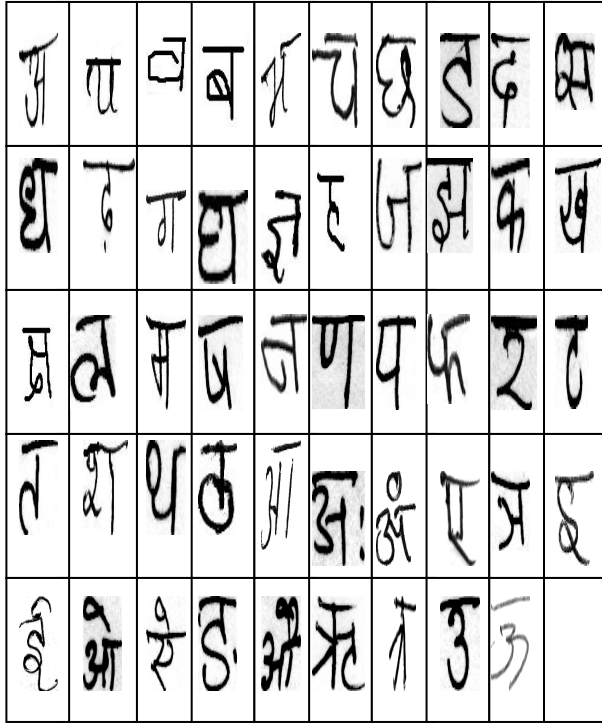 अ व ब भ च छ ड द
ध ढ़ ग घ ज्ञ ह ज झ क ख
क्ष ल म न ण प फ र ट
त श थ ठ आ अः अं ए इ
ई ओ ऐ ङ औ ऋ त्र उ ऊ